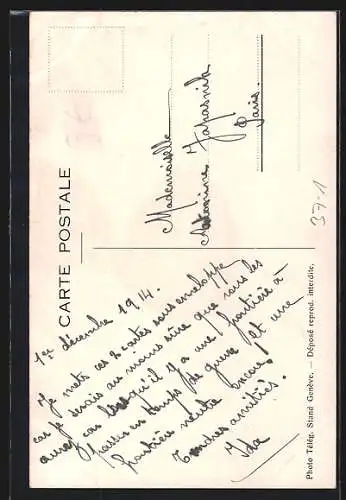 CARTE POSTALE
1er décembre 1914.
Je mets ces 2 cartes sous enveloppe
car je serais au moins sûre que vous les
aurez car lorsqu'il y a une frontière à
passer en temps de guerre! et une
frontière neutre encore!
Tendres amitiés.
Ida
Mademoiselle
Paris.
37-1
Photo Télég. Stand Genève. — Déposé reprod. interdite.